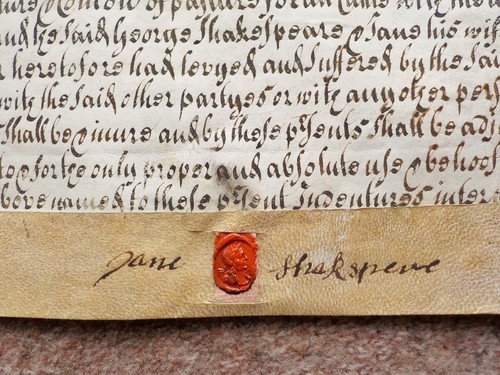 of pasture for
and the said George Shakespeare & Jane his wif
heretofore had levyed and suffered by the Sai
with the said other partyes or with any other per
Shall be & inure and by these pr͠sents Shall be adj
forth only proper and absolute use & behoof
bove named to these pr͠sent Indentures inter
Jane Shakspere